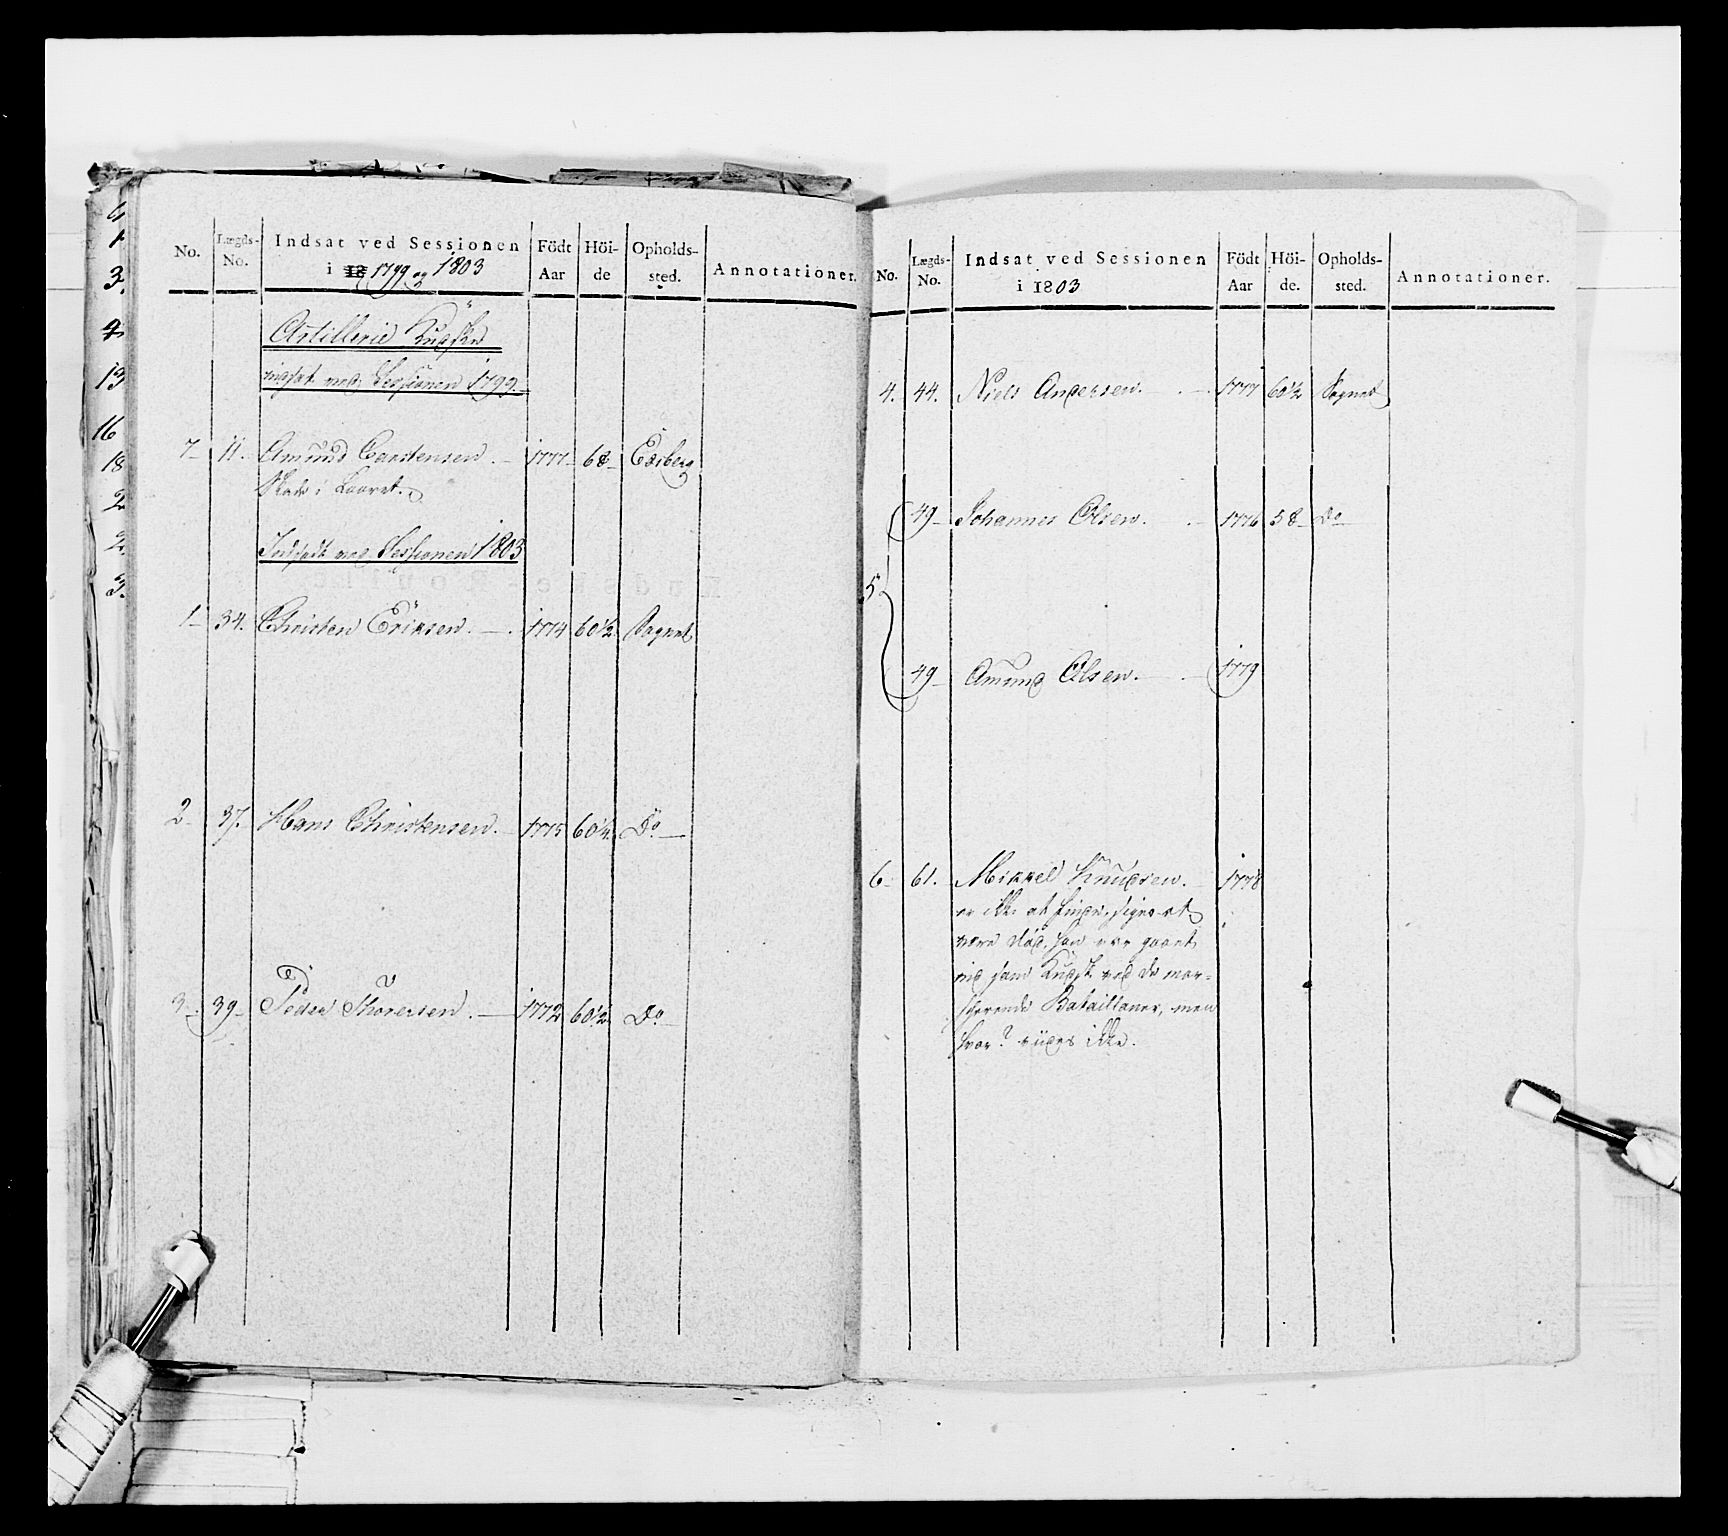 No. Lægds-No. Indsat ved Sessionen i 18 1799 og 1803 Födt Aar Höi-de Opholds-sted. Annotationer.
Artillerie Kudske
indsat ved Sessionen 1799.
7 11. Amund Carstensen. 1777 68 Edsberg
Skade i Laaret.
Indsadt ved Sessionen 1803
1 34. Christen Eriksen. 1774 60 1/2 Sognet
2 37. Hans Christensen. 1775 60 1/4 Do
3 39 Peder Thoresen. 1772 60 1/2 Do
No. Lægds-No. Indsat ved Sessionen i 1803 Födt Aar Höi-de. Opholds-sted. Annotationer.
4. 44. Niels Andersen. 1777 60 1/2 Sognet
49 Johannes Olsen. 1776 58 Do
5
49 Amund Olsen. 1779
6 61. Mikkel Knudsen. 1778
er ikke at finde, siges at
være död, han var gaaet
ind som Kudsk ved de mar-
scherende Batailloner, men
hvor? vides ikke.
4
1
3.
13
16
18
2
2.
3.